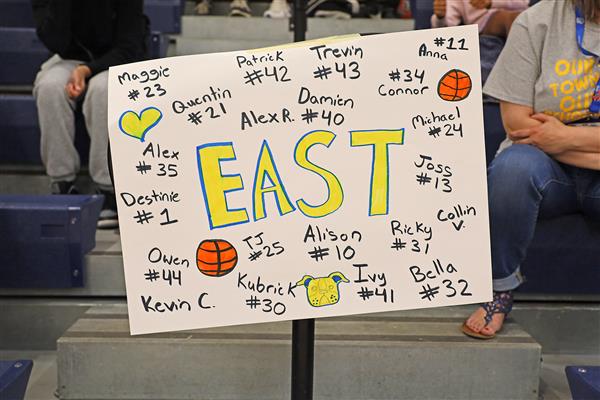 Maggie
#23
Patrick
#42
Trevin
#43
Anna
#11
#34
Connor
Quentin
#21
Alex R.
Damien
#40
Michael
#24
Alex
#35
EAST
Joss
#13
Destinie
#1
Collin
V.
Owen
#44
TJ
#25
Alison
#10
Ricky
#31
Kevin C.
Kubrick
#30
Ivy
#41
Bella
#32
OUR
TOWN
OUR